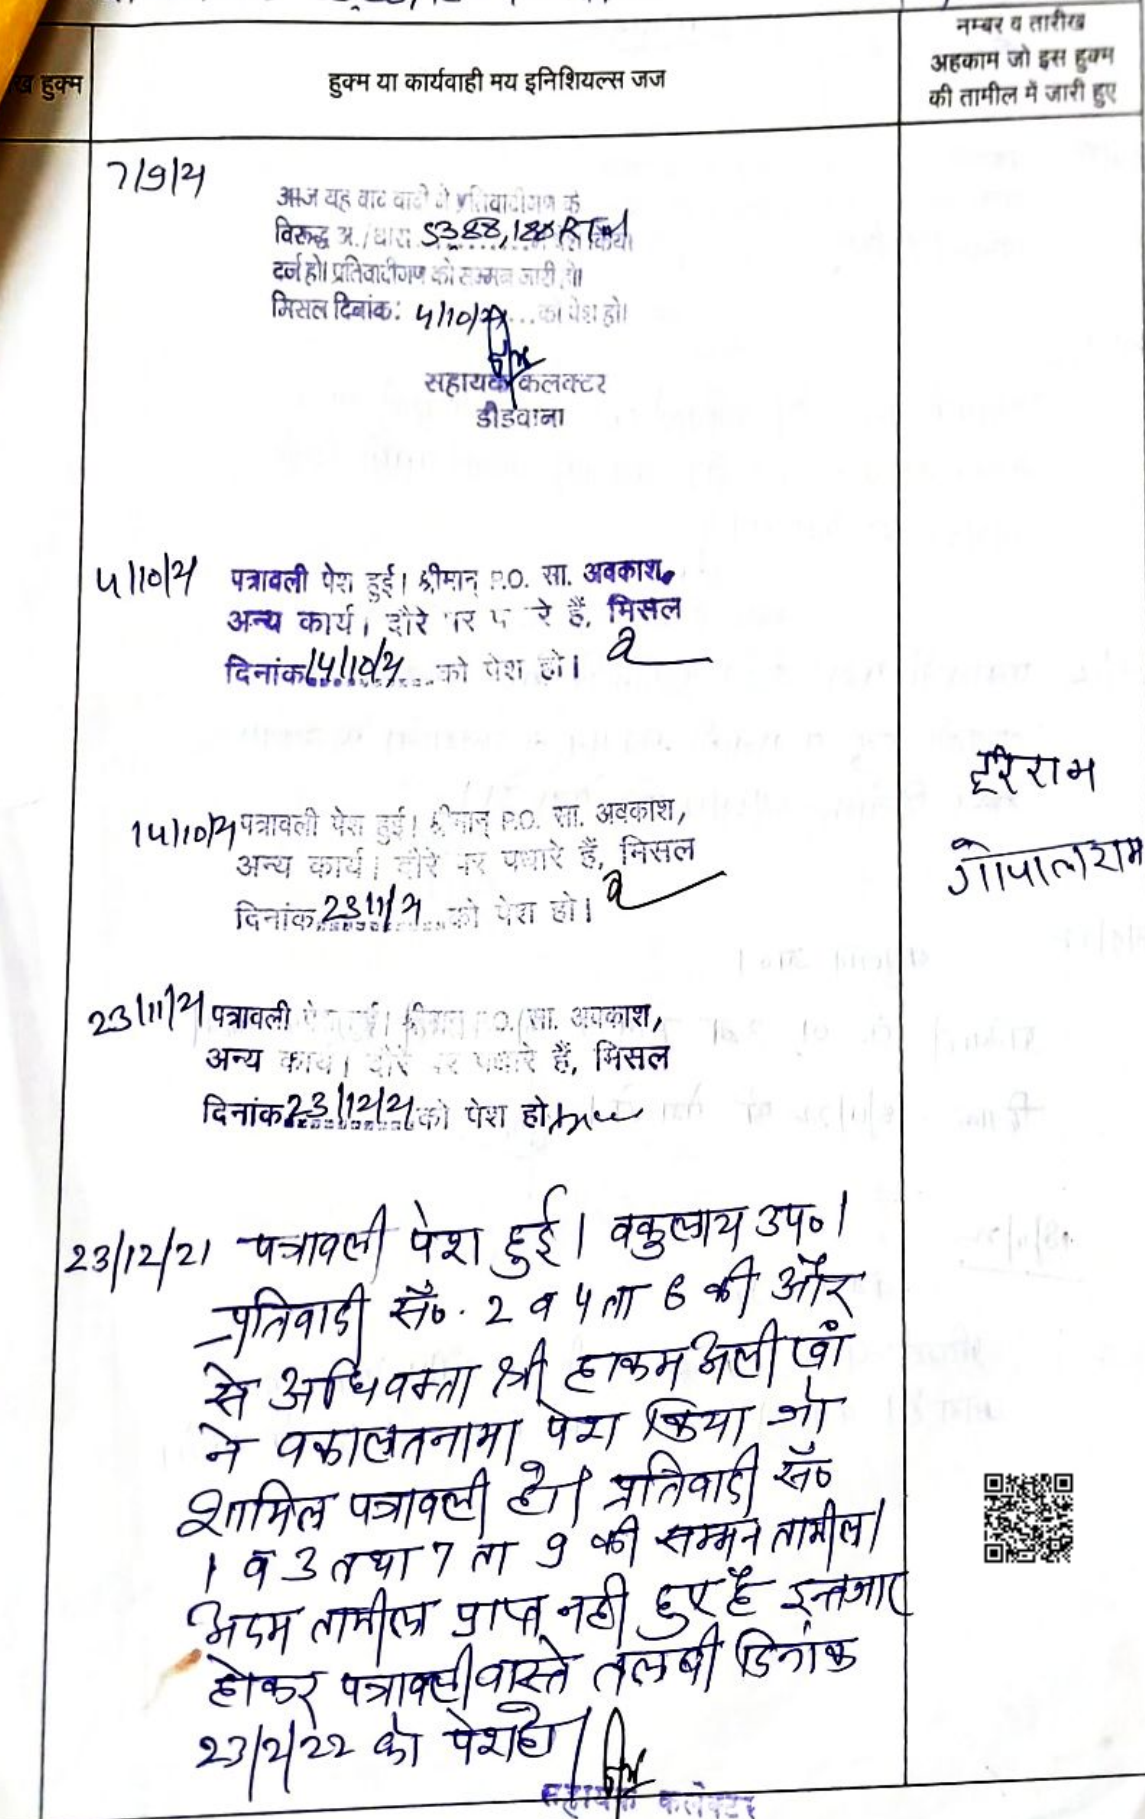 हुक्म
हुक्म या कार्यवाही मय इनिशियल्स जज
नम्बर व तारीख
अहकाम जो इस हुक्म
की तामील में जारी हुए
7/9/21
आज यह वाद वादी ने प्रतिवादीगण के
विरूद्ध अ./धारा 53 88, 188 RTA
दर्ज हो। प्रतिवादीगण को सम्मन जारी हो।
मिसल दिनांक: 4/10/21 ... को पेश हो।
सहायक कलक्टर
डीडवाना
4/10/21 पत्रावली पेश हुई। श्रीमान् P.O. सा. अवकाश,
अन्य कार्य। दौरे पर पधारे हैं, मिसल
दिनांक 14/10/21 को पेश हो।
हरिराम
14/10/21 पत्रावली पेश हुई। श्रीमान् P.O. सा. अवकाश,
अन्य कार्य। दौरे पर पधारे हैं, मिसल
गोपालराम
दिनांक 23/11/21 को पेश हो।
23/11/21 पत्रावली पेश हुई। श्रीमान् P.O. सा. अवकाश,
अन्य कार्य। दौरे पर पधारे हैं, मिसल
दिनांक 23/12/21 को पेश हो
23/12/21 पत्रावली पेश हुई। वकुलाय उप०।
प्रतिवादी सं०. 2 व 4 ता 6 की और
से अधिवक्ता श्री हाकम अली खां
ने वकालतनामा पेश किया जो
शामिल पत्रावली हो। प्रतिवादी सं०
1 व 3 तथा 7 ता 9 की सम्मन तामील।
अदम तामील प्राप्त नही हुए है इन्तजार
होकर पत्रावली वास्ते तलबी दिनांक
23/2/22 को पेश हो।
सहायक कलेक्टर